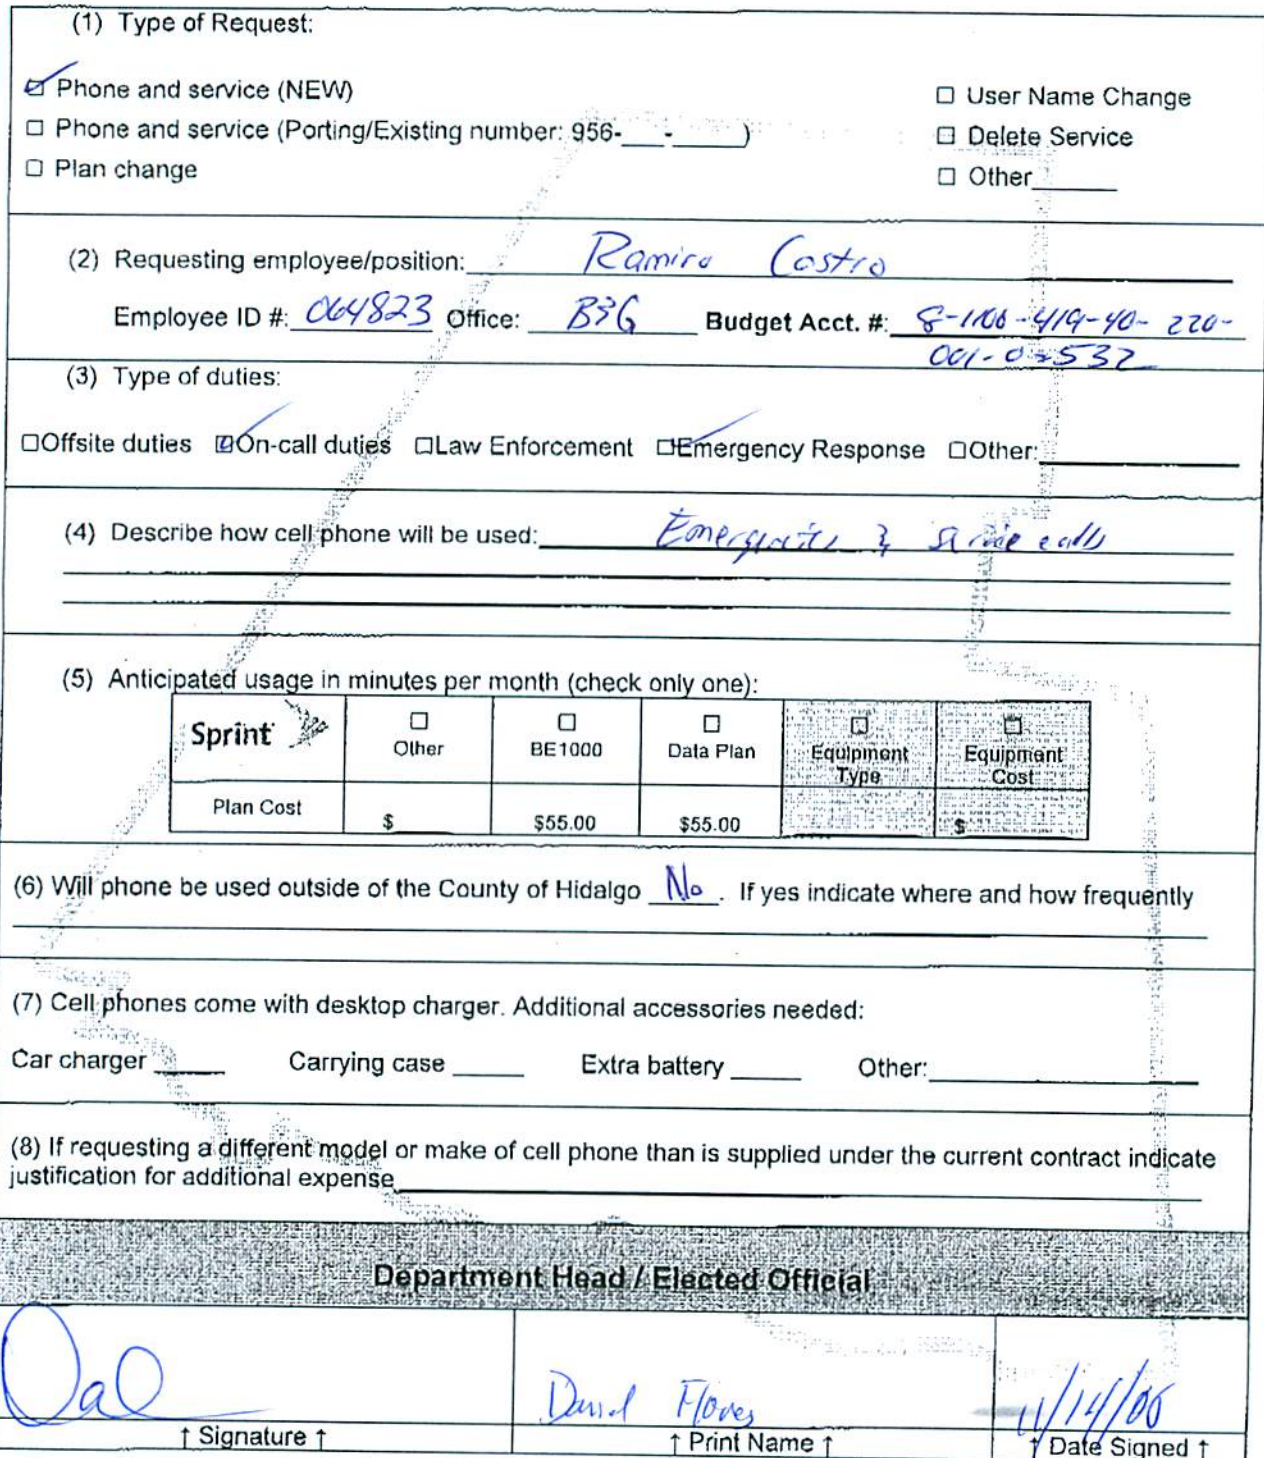 (1) Type of Request:
☑ Phone and service (NEW)
☐ User Name Change
☐ Phone and service (Porting/Existing number: 956-___-_____)
☐ Delete Service
☐ Plan change
☐ Other______
(2) Requesting employee/position: Ramiro Castro
Employee ID #: 064823 Office: B&G Budget Acct. #: 8-1100-419-40-220-
001-0-532
(3) Type of duties:
☐Offsite duties ☑On-call duties ☐Law Enforcement ☑Emergency Response ☐Other:
(4) Describe how cell phone will be used: Emergencies & Service calls
(5) Anticipated usage in minutes per month (check only one):
Sprint ☐ Other ☐ BE1000 ☐ Data Plan ☐ Equipment Type ☐ Equipment Cost
Plan Cost $______ $55.00 $55.00 $
(6) Will phone be used outside of the County of Hidalgo No. If yes indicate where and how frequently
(7) Cell phones come with desktop charger. Additional accessories needed:
Car charger _____ Carrying case _____ Extra battery _____ Other:
(8) If requesting a different model or make of cell phone than is supplied under the current contract indicate
justification for additional expense
Department Head / Elected Official
Daniel Flores 11/14/06
↑ Signature ↑ ↑ Print Name ↑ ↑ Date Signed ↑